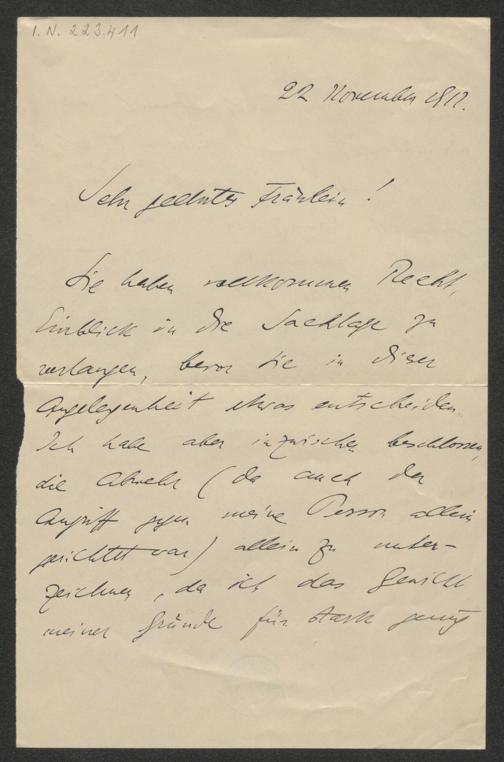 I. N. 223.411
22 November 1912.
Sehr geehrtes Fräulein!
Sie haben vollkommen Recht,
Einblick in die Sachlage zu
verlangen, bevor Sie in dieser
Angelegenheit etwas entscheiden.
Ich habe aber inzwischen beschlossen,
die Abwehr (da auch der
Angriff gegen meine Person allein
gerichtet war) allein zu unter-
zeichnen, da ich das Gewicht
meiner Gründe für stark genug